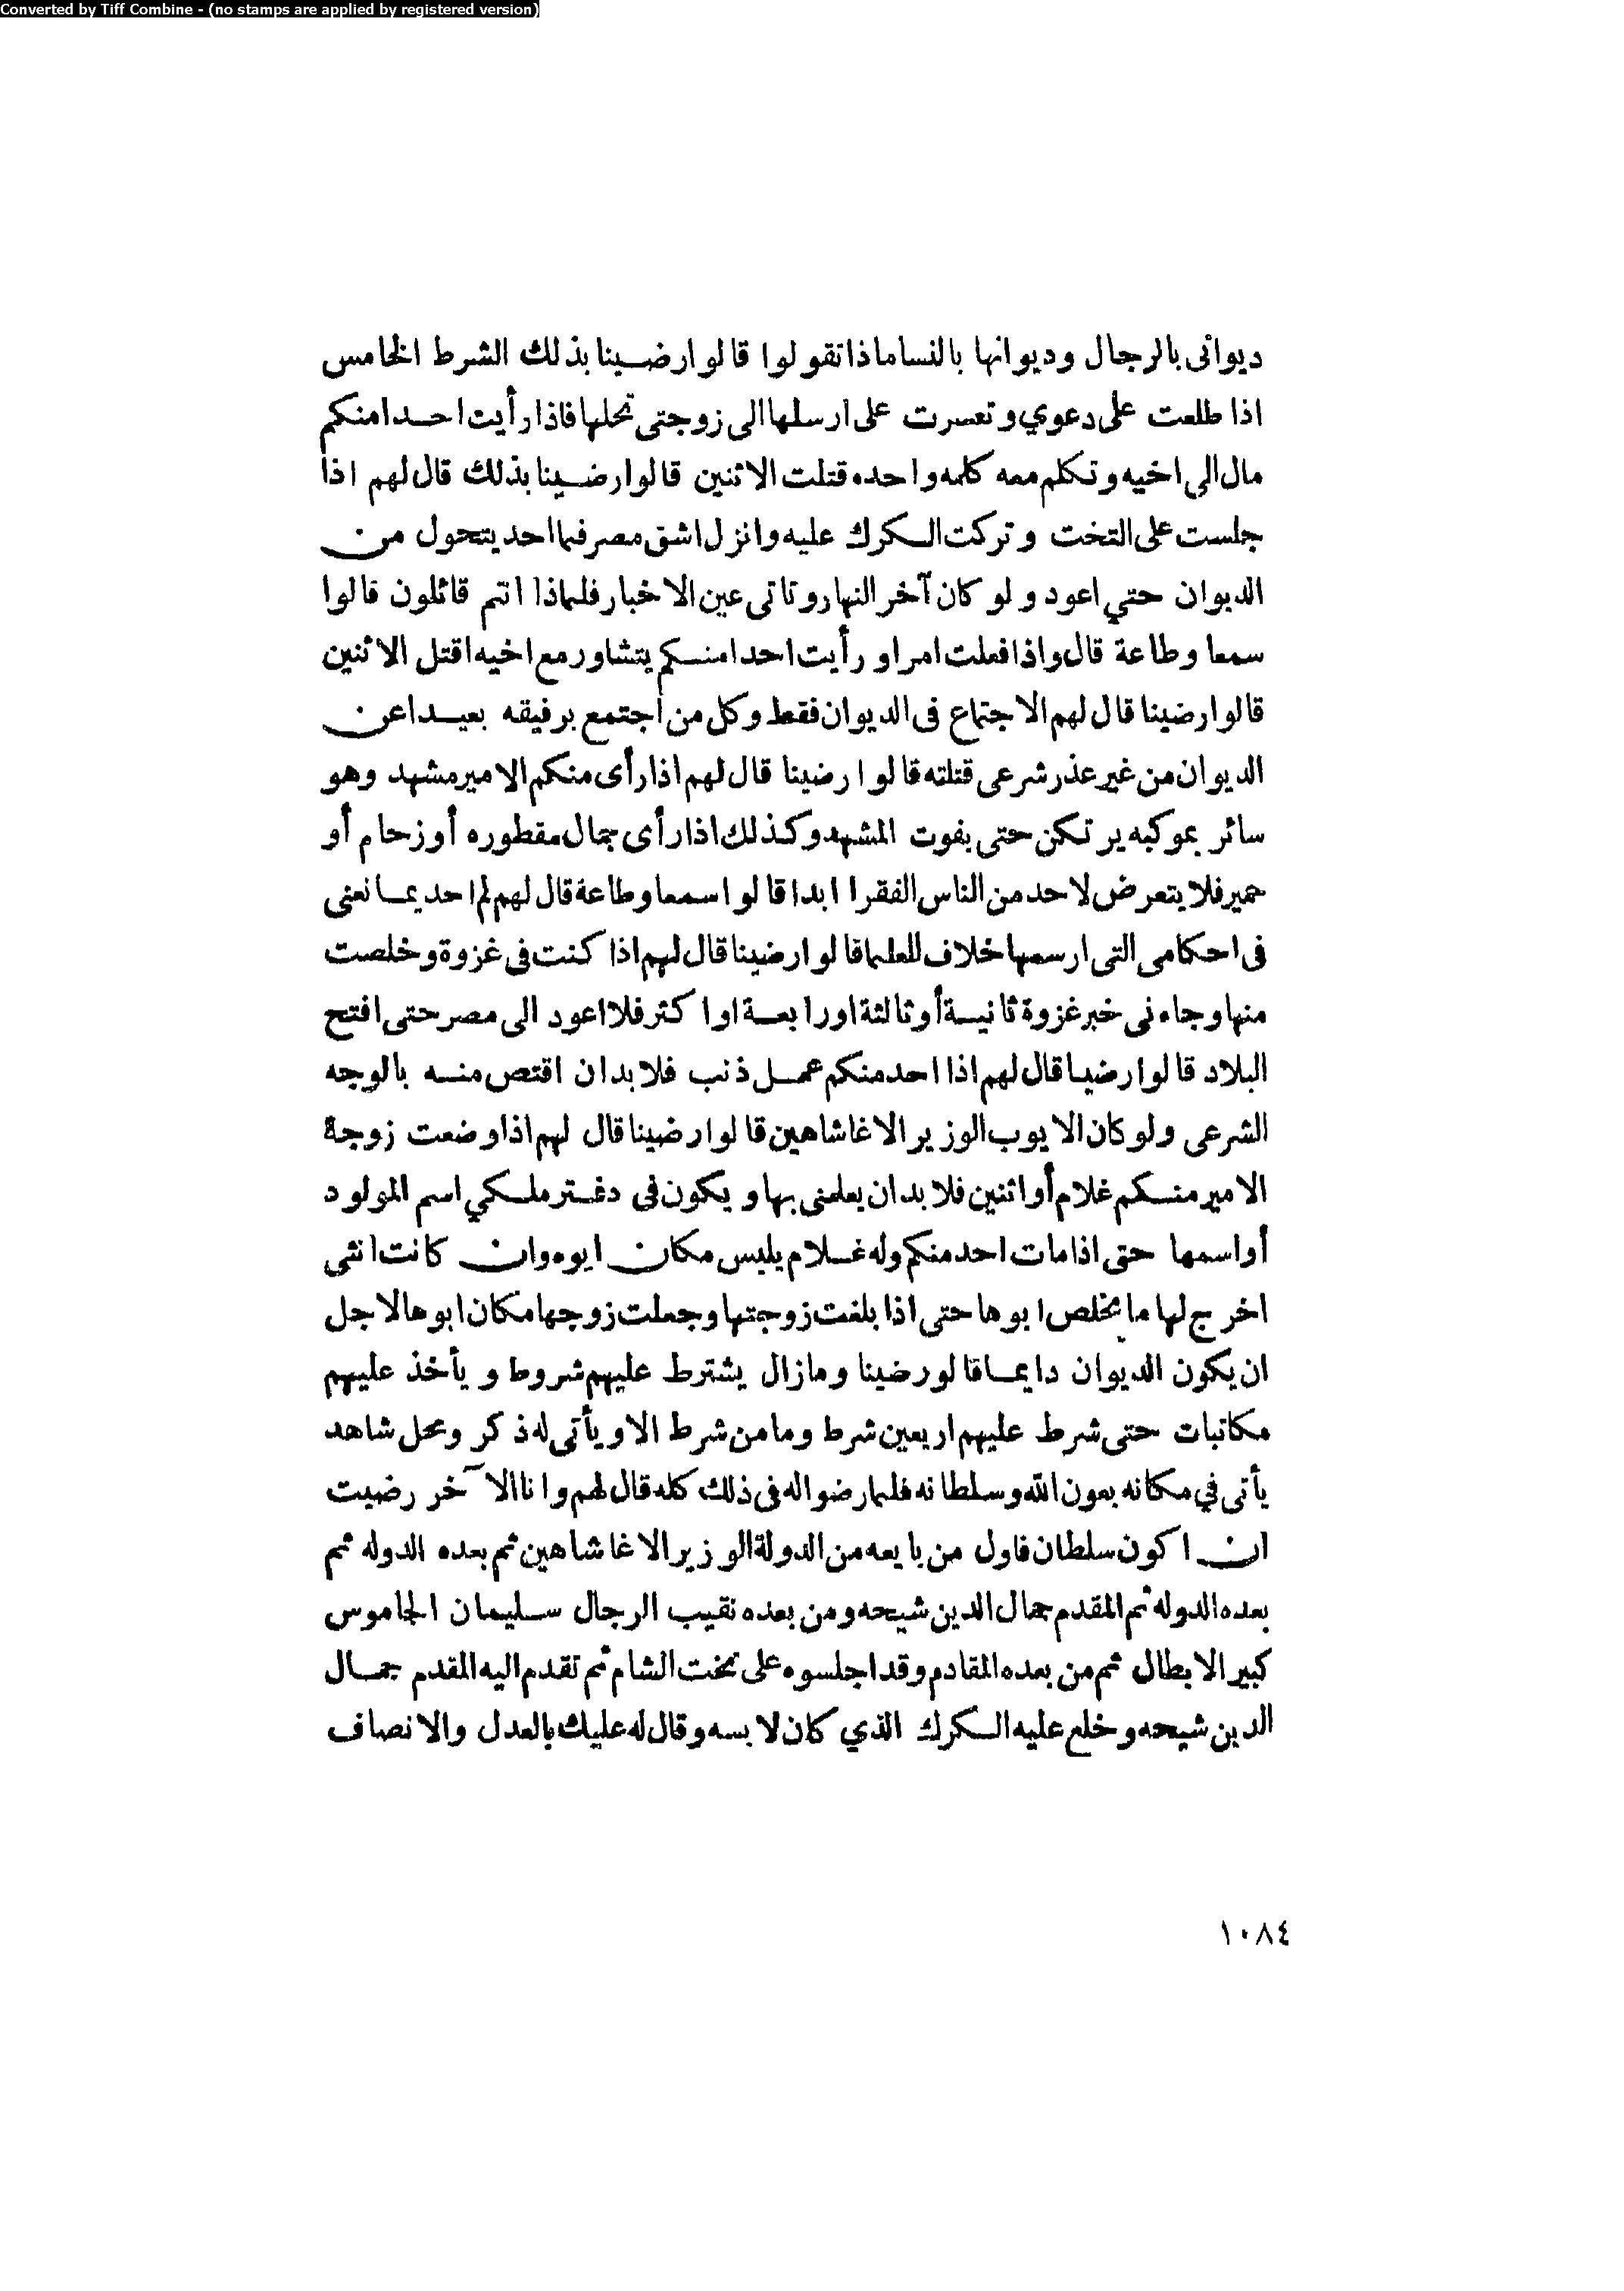 Converted by Tiff Combine - (no stamps are applied by registered version)
ديوانى بالرجال وديوانها بالنسا ماذا تقولوا قالوا رضينا بذلك الشرط الخامس
اذا طلعت على دعوي وتعسرت على ارسلها الى زوجتى تحلها فاذا رأيت احدا منكم
مال الى اخيه وتكلم معه كلمه واحده قتلت الاثنين قالوا رضينا بذلك قال لهم اذا
جلست على التخت وتركت الكرك عليه وانزل اشق مصر فما احد يتحول من
الديوان حتي اعود ولو كان آخر النهار وتاتى عين الاخبار فلماذا انتم قائلون قالوا
سمعا وطاعة قال واذا فعلت امرا و رأيت احدا منكم يتشاور مع اخيه اقتل الاثنين
قالوا رضينا قال لهم الاجتماع فى الديوان فقط وكل من أجتمع برفيقه بعيدا عن
الديوان من غير عذر شرعى قتلته قالوا رضينا قال لهم اذا رأى منكم الامير مشهد وهو
سائر بموكبه يرتكن حتى يفوت المشهد وكذلك اذا رأى جمال مقطوره أو زحام أو
حمير فلا يتعرض لاحد من الناس الفقرا ابدا قالوا سمعا وطاعة قال لهم لم احد يمانعنى
فى احكامى التى ارسمها خلاف للعلما قالوا رضينا قال لهم اذا كنت فى غزوة وخلصت
منها وجاءنى خبر غزوة ثانية أو ثالثة او رابعة او اكثر فلا اعود الى مصر حتى افتح
البلاد قالوا رضيا قال لهم اذا احد منكم عمل ذنب فلا بد ان اقتص منه بالوجه
الشرعى ولو كان الايوب الوزير الاغا شاهين قالوا رضينا قال لهم اذا وضعت زوجة
الامير منكم غلام أو اثنين فلا بد ان يعلمنى بها ويكون فى دفتر ملكي اسم المولود
أو اسمها حتى اذا مات احد منكم وله غلام يلبس مكان ابوه وان كانت انثى
اخرج لها ما يخلص ابوها حتى اذا بلغت زوجتها وجعلت زوجها مكان ابوها لاجل
ان يكون الديوان دايما قالو رضينا ومازال يشترط عليهم شروط ويأخذ عليهم
مكاتبات حتى شرط عليهم اربعين شرط وما من شرط الا ويأتى له ذكر ومحل شاهد
يأتى في مكانه بعون الله وسلطانه فلما رضوا له فى ذلك كله قال لهم وانا الآخر رضيت
ان اكون سلطان فاول من بايعه من الدولة الوزير الاغا شاهين ثم بعده الدوله ثم
بعده الدوله ثم المقدم جمال الدين شيحه ومن بعده نقيب الرجال سليمان الجاموس
كبير الابطال ثم من بعده المقادم وقد اجلسوه على تخت الشام ثم تقدم اليه المقدم جمال
الدين شيحه وخلع عليه الكرك الذي كان لابسه وقال له عليك بالعدل والانصاف
١٠٨٤